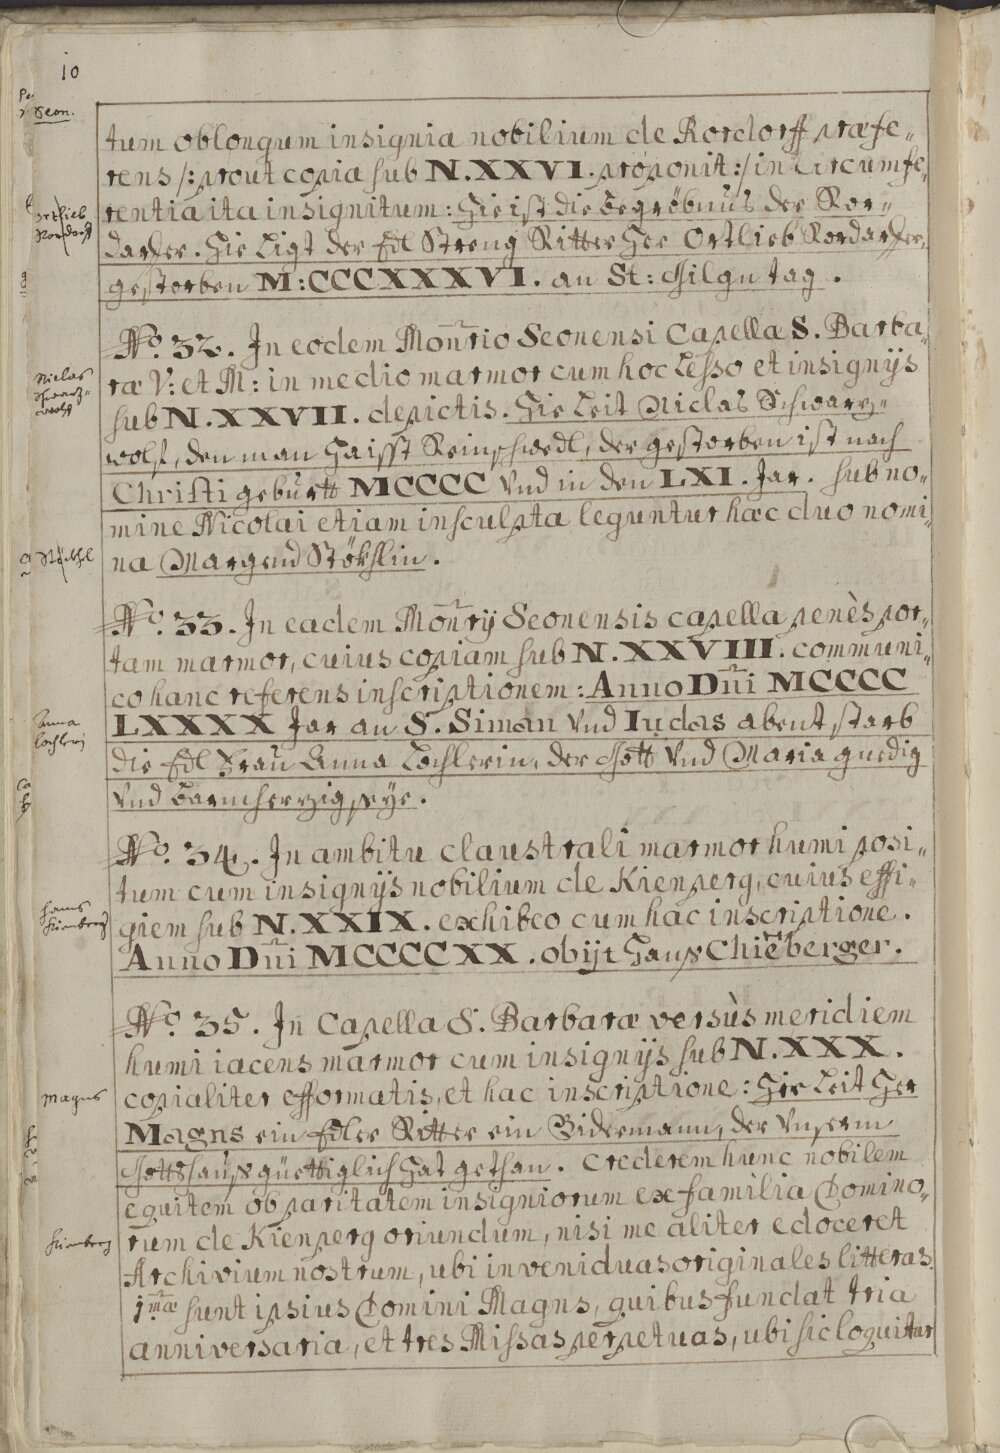 10
Seon.
tum oblongum insignia nobilium de Rordorff præfe„
rens /: prout copia sub N. XXVI. proponit :/ in circumfe„
rentia ita insignitum: Hie ist die Begröbnus der Ror„
darffer. Hie Ligt der Edl Streng Ritter Her Ortlieb Rordarffer,
gestorben M:CCCXXXVI. an St: Gilgn tag.
Ortlieb
Rordorff
No. 32. In eodem Monrio Seonensi Capella S. Barba„
ræ V: et M: in medio marmor cum hoc Lesso et insignijs
sub N. XXVII. depictis. Hie Leit Niclas Schwarz„
wolf, den man Haisst Reinschwedl, der gestorben ist nach
Christi gebürtt MCCCC Vnd in den LXI. Jar. sub no„
mine Nicolai etiam insculpta leguntur hæc duo nomi„
na Margend Stökhlin.
Niclas
Schwarz„
wolf
Stökhl
No. 33. In eadem Monrij Seonensis capella penès por„
tam marmor, cuius copiam sub N. XXVIII. communi„
co hanc referens inscriptionem: Anno Dni MCCCC
LXXXX Jar an S. Siman Vnd Iudas abent starb
die Edl Frau Anna Lochlerin, der Gott Vnd Maria gnedig
Vnd Barmherzig seye.
Anna
Lochlerin
No. 34. In ambitu claustrali marmor humi posi„
tum cum insignijs nobilium de Kienperg, cuius effi„
giem sub N. XXIX. exhibeo cum hac inscriptione.
Anno Dni MCCCCXX. obijt Hanß Chienberger.
Hanns
Kienberg
No. 35. In Capella S. Barbaræ versùs meridiem
humi iacens marmor cum insignijs sub N. XXX.
copialiter efformatis, et hac inscriptione: Hie Leit Her
Magns ein Edler Ritter ein Bidermann, der Vnserm
Gottshauß güettiglich Hat gethan. Crederem hunc nobilem
equitem ob paritatem insigniorum ex familia Domino„
rum de Kienperg oriundum, nisi me aliter edoceret
Archivium nostrum, ubi inveni duas originales litteras.
1mæ sunt ipsius Domini Magns, quibus fundat tria
anniversaria, et tres Missas perpetuas, ubi sic loquitur
Magns
Kienberg